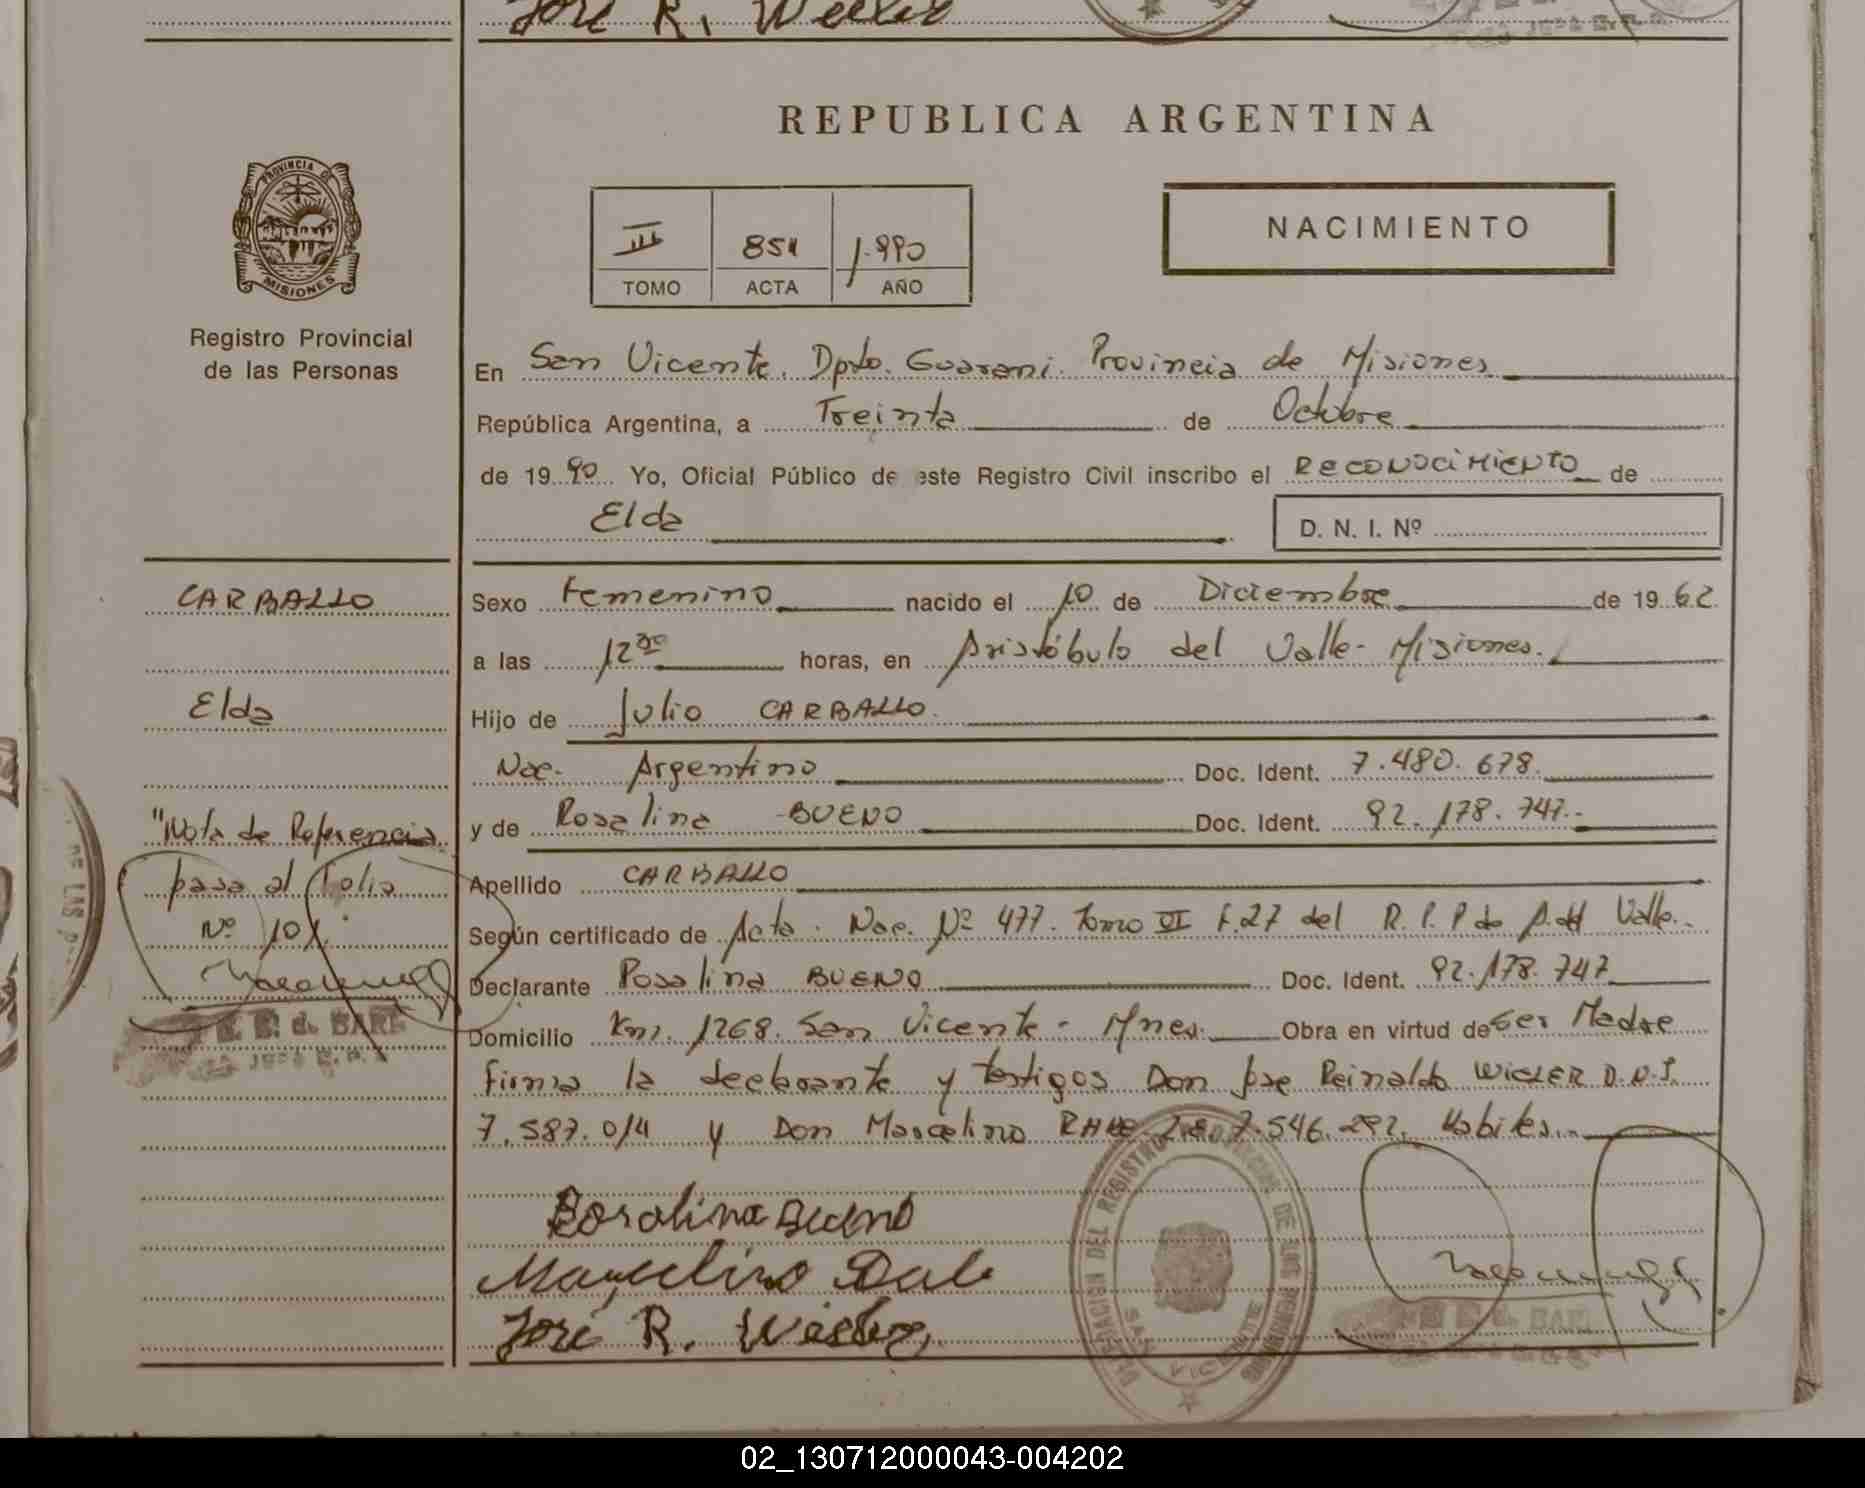 José R.
REPUBLICA ARGENTINA
PROVINCIA DE
MISIONES
NACIMIENTO
III 851 1.990
TOMO ACTA AÑO
Registro Provincial
de las Personas
En San Vicente. Dpto. Guarani. Provincia de Misiones
República Argentina, a Treinta de Octubre
de 1990 Yo, Oficial Público de este Registro Civil inscribo el RECONOCIMIENTO de
Elda D. N. I. Nº
CARBALLO
Sexo Femenino nacido el 10 de Diciembre de 1962
a las 12 30 horas, en Aristóbulo del Valle - Misiones.
Elda
Hijo de Julio CARBALLO.
Nac. Argentino Doc. Ident. 7.480.678.
"Nota de Referencia
y de Rosalina BUENO Doc. Ident. 92.178.747.-
pasa al Folio
Apellido CARBALLO
Nº 101.
Según certificado de Acta. Nac. Nº 477. Tomo VI F.27 del R.P.P de A. del Valle.
Declarante Rosalina BUENO Doc. Ident. 92.178.747
Domicilio Km. 1268. San Vicente - Mnes. Obra en virtud de Ser Madre
Firma la declarante y testigos Don Jose Reinaldo D.N.I.
7.587.014 y Don Marcelino 7.546.292. Habiles.
Rosalina Bueno
Marcelino
José R.
DELEGACION DEL REGISTRO
SAN VICENTE
02_130712000043-004202